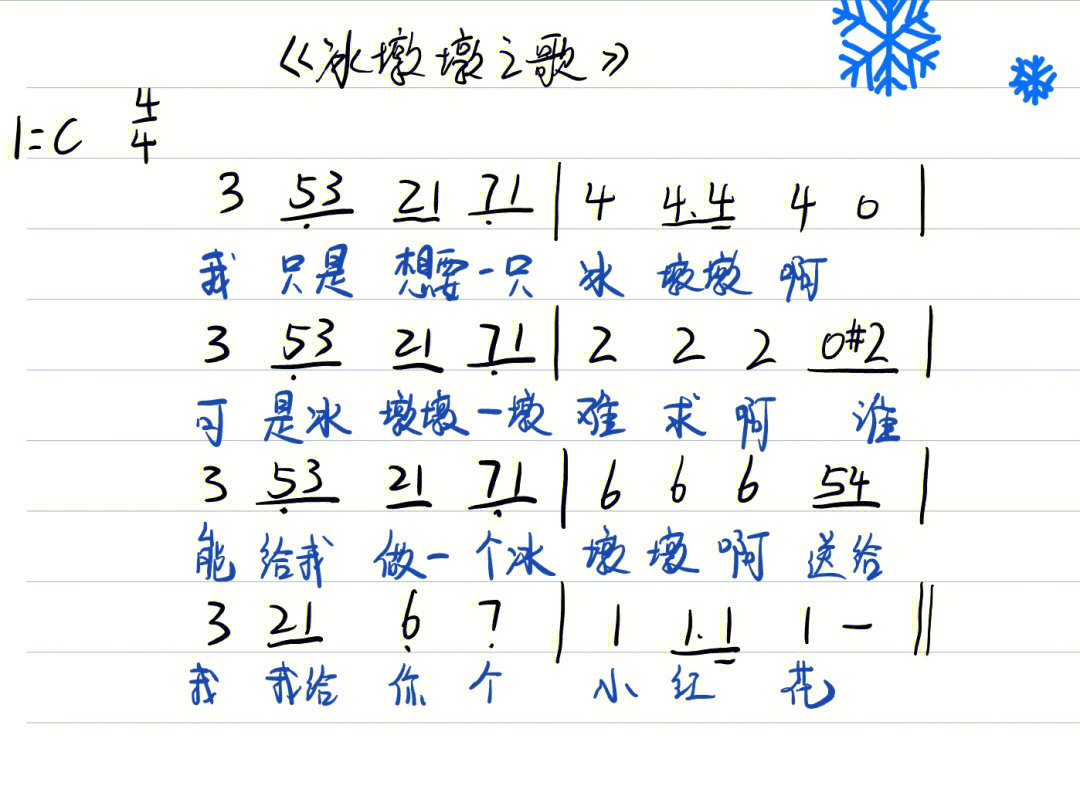 《冰墩墩之歌》
1=C 4/4
3 53 21 71 | 4 4.4 4 0 |
我 只是 想要 一只 冰 墩墩 啊
3 53 21 71 | 2 2 2 0#2 |
可 是冰 墩墩 一墩 难 求 啊 谁
3 53 21 71 | 6 6 6 54 |
能 给我 做一 个冰 墩 墩 啊 送给
3 21 6 7 | 1 1.1 1 — ||
我 我给 你 个 小 红 花